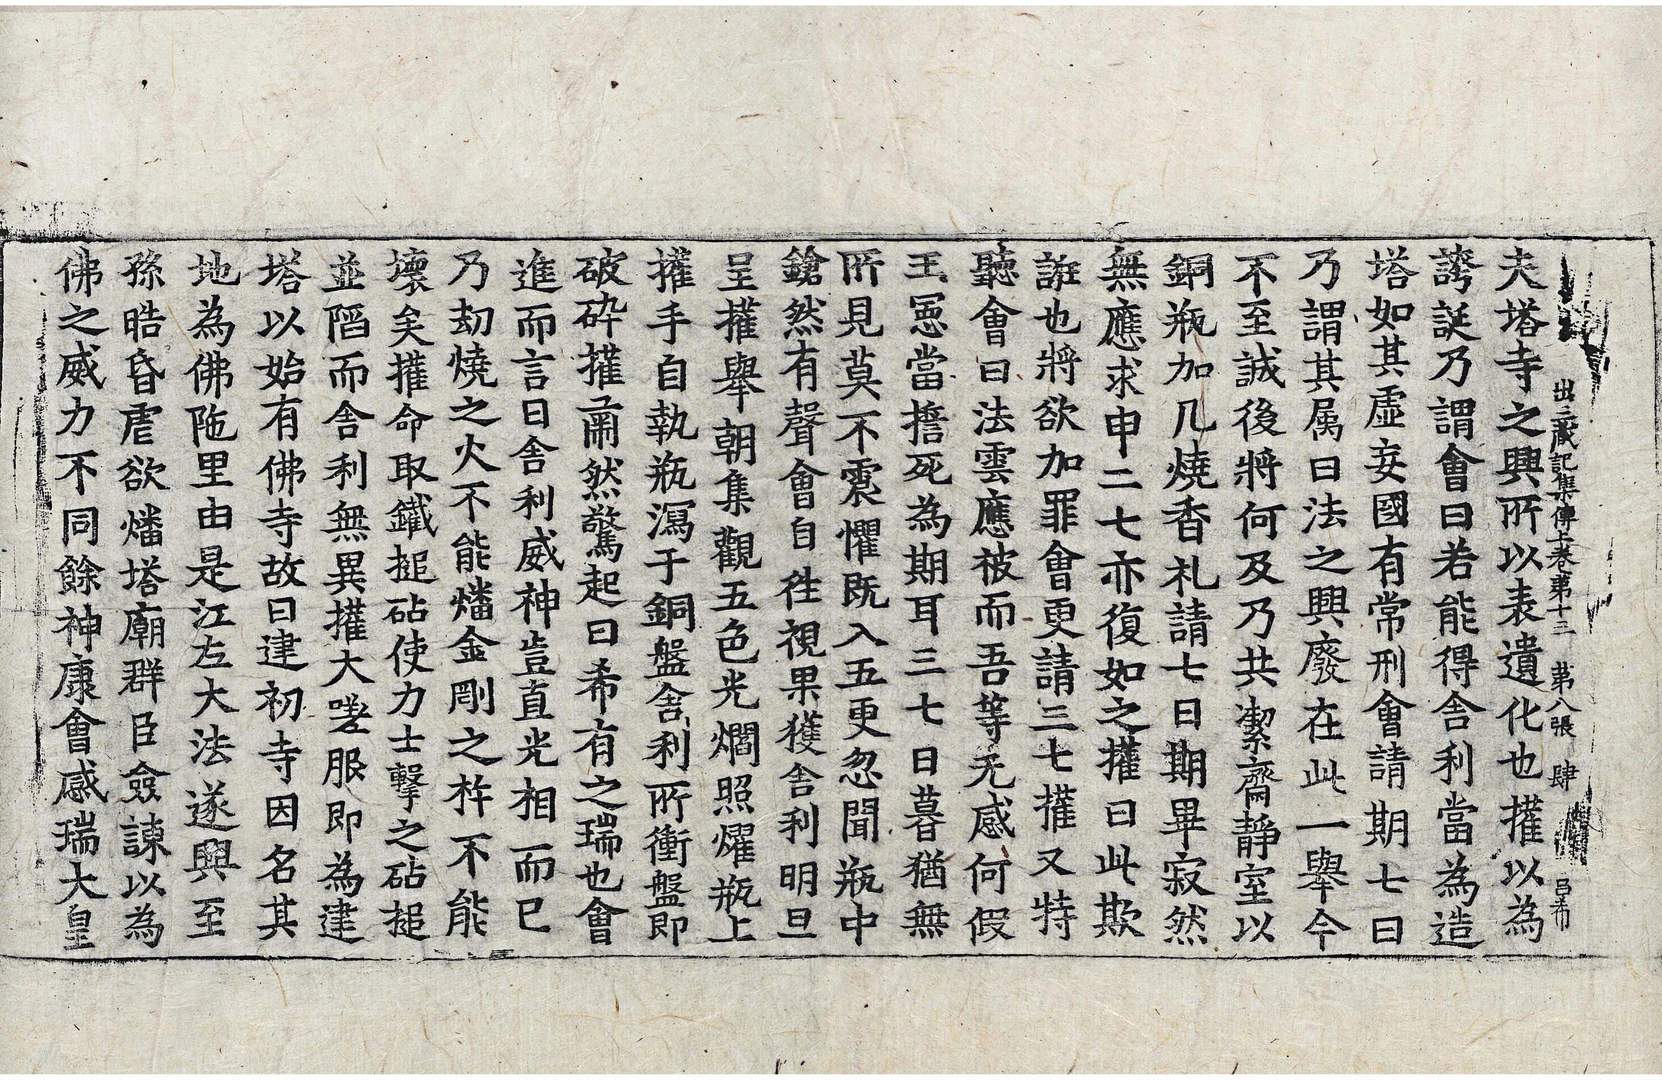 出三藏記集傳上卷第十三　第八張　肆　呂希
夫塔寺之興所以表遺化也攉以為
誇誕乃謂會曰若能得舍利當為造
塔如其虛妄國有常刑會請期七日
乃謂其属曰法之興廢在此一舉今
不至誠後將何及乃共潔齋靜室以
銅瓶加几燒香礼請七日期畢寂然
無應求申二七亦復如之攉曰此欺
誑也將欲加罪會更請三七攉又特
聽會曰法雲應被而吾等无感何假
王𢙣當擔死為期耳三七日暮猶無
所見莫不震懼既入五更忽聞瓶中
鎗然有聲會自往視果獲舍利明旦
呈攉舉朝集觀五色光爓照燿瓶上
攉手自執瓶瀉于銅盤舍利所衝盤即
破碎攉肅然驚起曰希有之瑞也會
進而言曰舍利威神豈直光相而已
乃劫燒之火不能燔金剛之杵不能
壞矣攉命取鐵搥砧使力士擊之砧搥
並陷而舍利無異攉大嗟服即為建
塔以始有佛寺故曰建初寺因名其
地為佛陁里由是江左大法遂興至
孫晧昏虐欲燔塔廟群臣僉諫以為
佛之威力不同餘神康會感瑞大皇